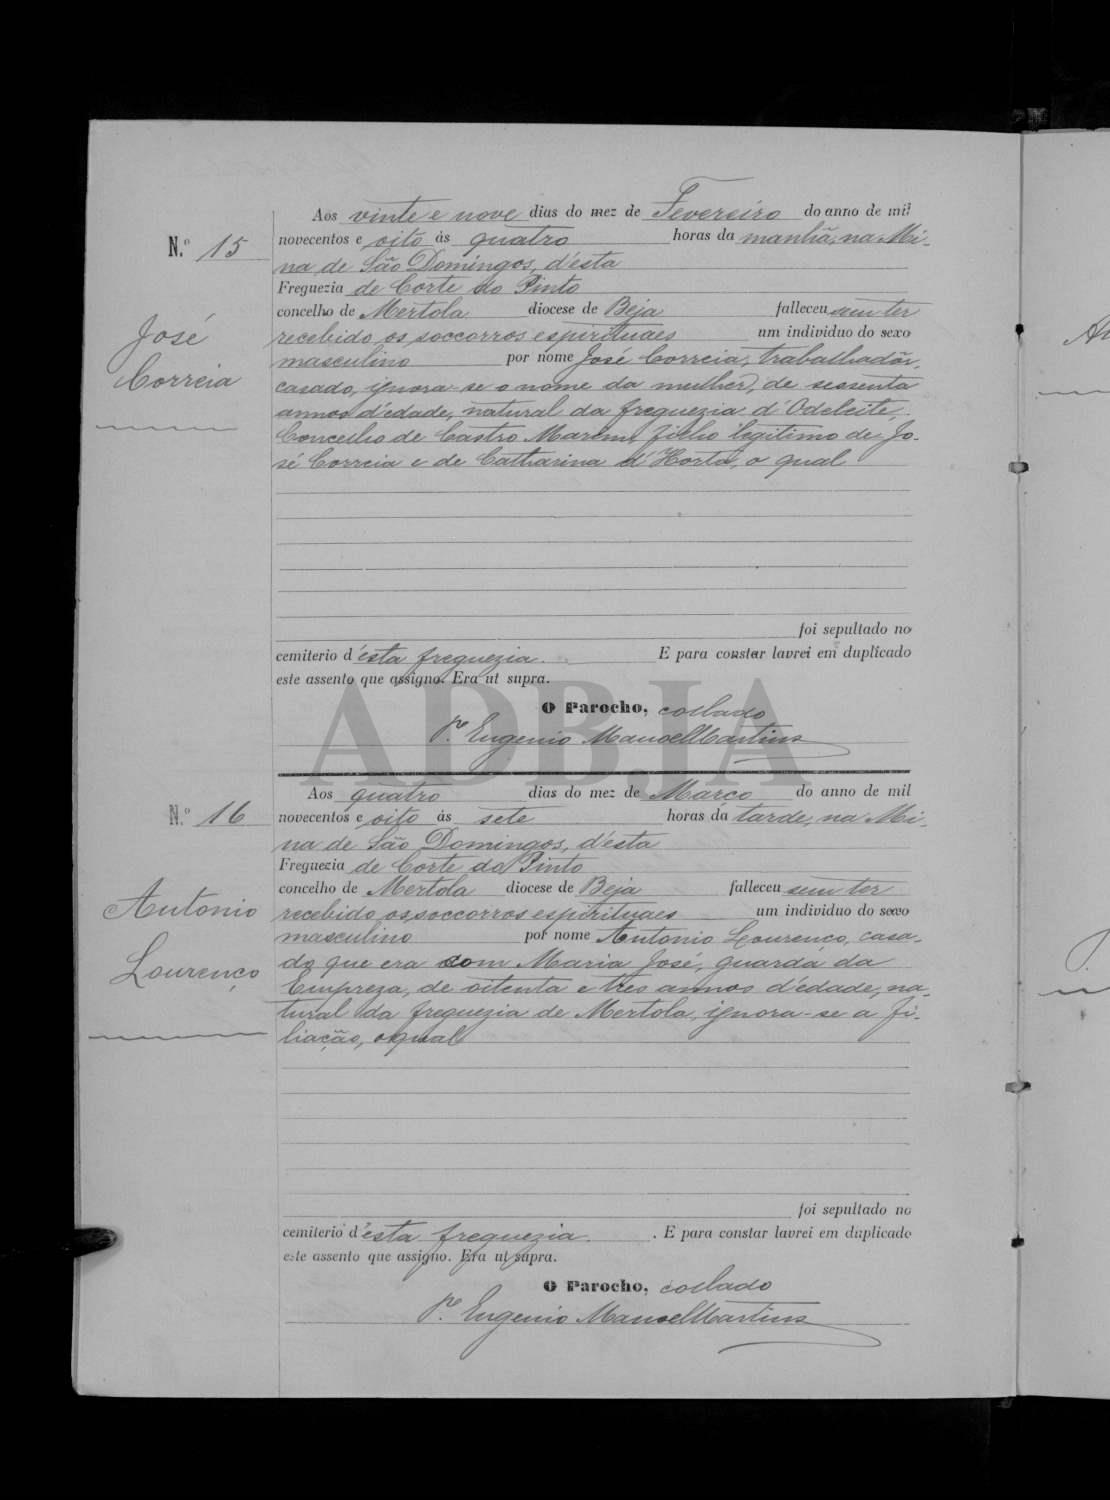 Aos vinte e nove dias do mez de Fevereiro do anno de mil
N.º 15
novecentos e oito ás quatro horas da manhã, na Mi-
na de São Domingos, d'esta
Freguezia de Corte do Pinto
concelho de Mertola diocese de Beja falleceu sem ter
recebido os soccorros espirituaes um individuo do sexo
masculino por nome José Correia, trabalhador,
José
Correia
casado, ignora-se o nome da mulher, de sessenta
annos d'edade, natural da freguezia d'Odeleite,
Concelho de Castro Marim, filho legitimo de Jo-
sé Correia e de Catharina d'Horta, o qual
foi sepultado no
cemiterio d'esta freguezia. E para constar lavrei em duplicado
este assento que assigno. Era ut supra.
O Parocho, collado
P.e Eugenio Manoel Martins
ADBJA
Aos quatro dias do mez de Março do anno de mil
N.º 16
novecentos e oito ás sete horas da tarde, na Mi-
na de São Domingos, d'esta
Freguezia de Corte do Pinto
concelho de Mertola diocese de Beja falleceu sem ter
recebido os soccorros espirituaes um individuo do sexo
masculino por nome Antonio Lourenço, casa-
Antonio
Lourenço
do que era com Maria José, guarda da
Empreza, de oitenta e tres annos d'edade, na-
tural da freguezia de Mertola, ignora-se a fi-
liação, o qual
foi sepultado no
cemiterio d'esta freguezia. . E para constar lavrei em duplicado
este assento que assigno. Era ut supra.
O Parocho, collado
P.e Eugenio Manoel Martins